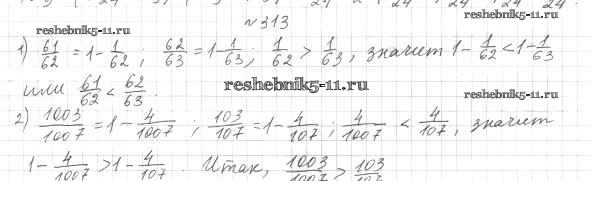 №313
reshebnik5-11.ru
reshebnik5-11.ru
1) 61/62 = 1 - 1/62; 62/63 = 1 - 1/63; 1/62 > 1/63, значит 1 - 1/62 < 1 - 1/63
или 61/62 < 62/63.
reshebnik5-11.ru
reshebnik5-11.ru
2) 1003/1007 = 1 - 4/1007; 103/107 = 1 - 4/107; 4/1007 < 4/107, значит
1 - 4/1007 > 1 - 4/107. Итак, 1003/1007 > 103/107